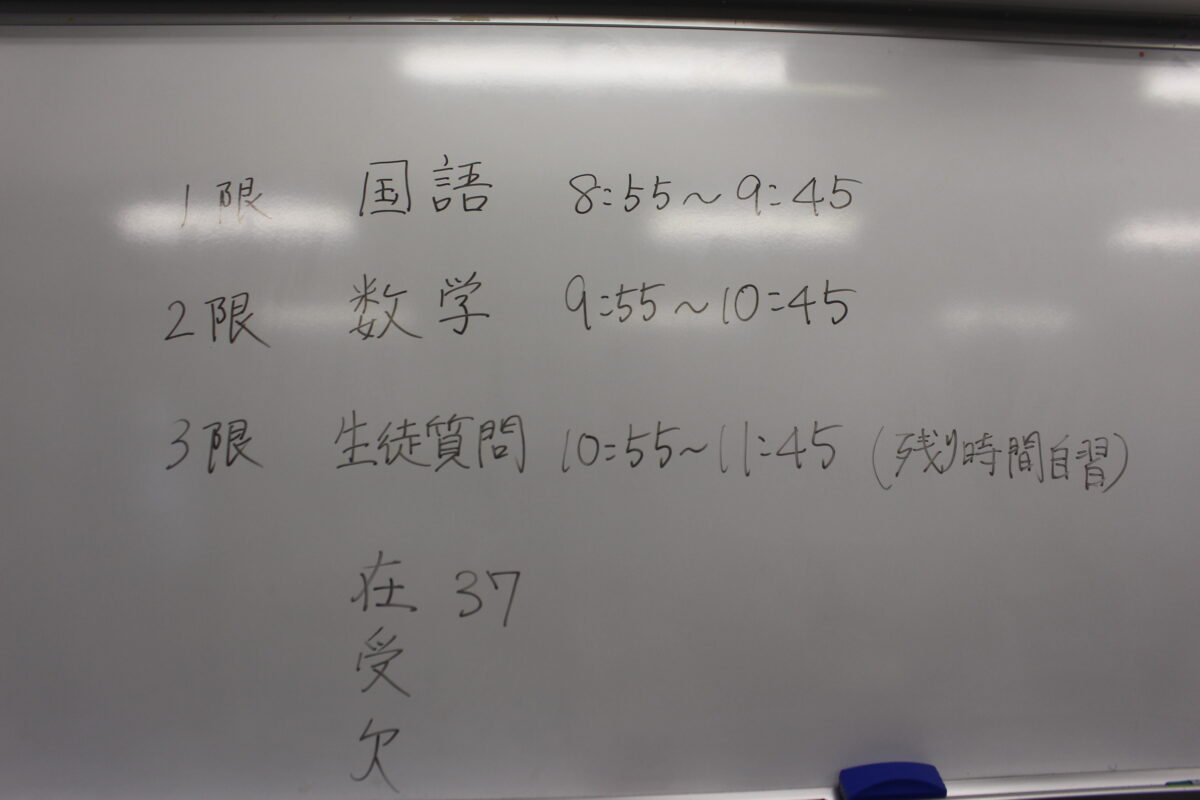 1限 国語 8:55～9:45
2限 数学 9:55～10:45
3限 生徒質問 10:55～11:45 (残り時間自習)
在 37
受
欠